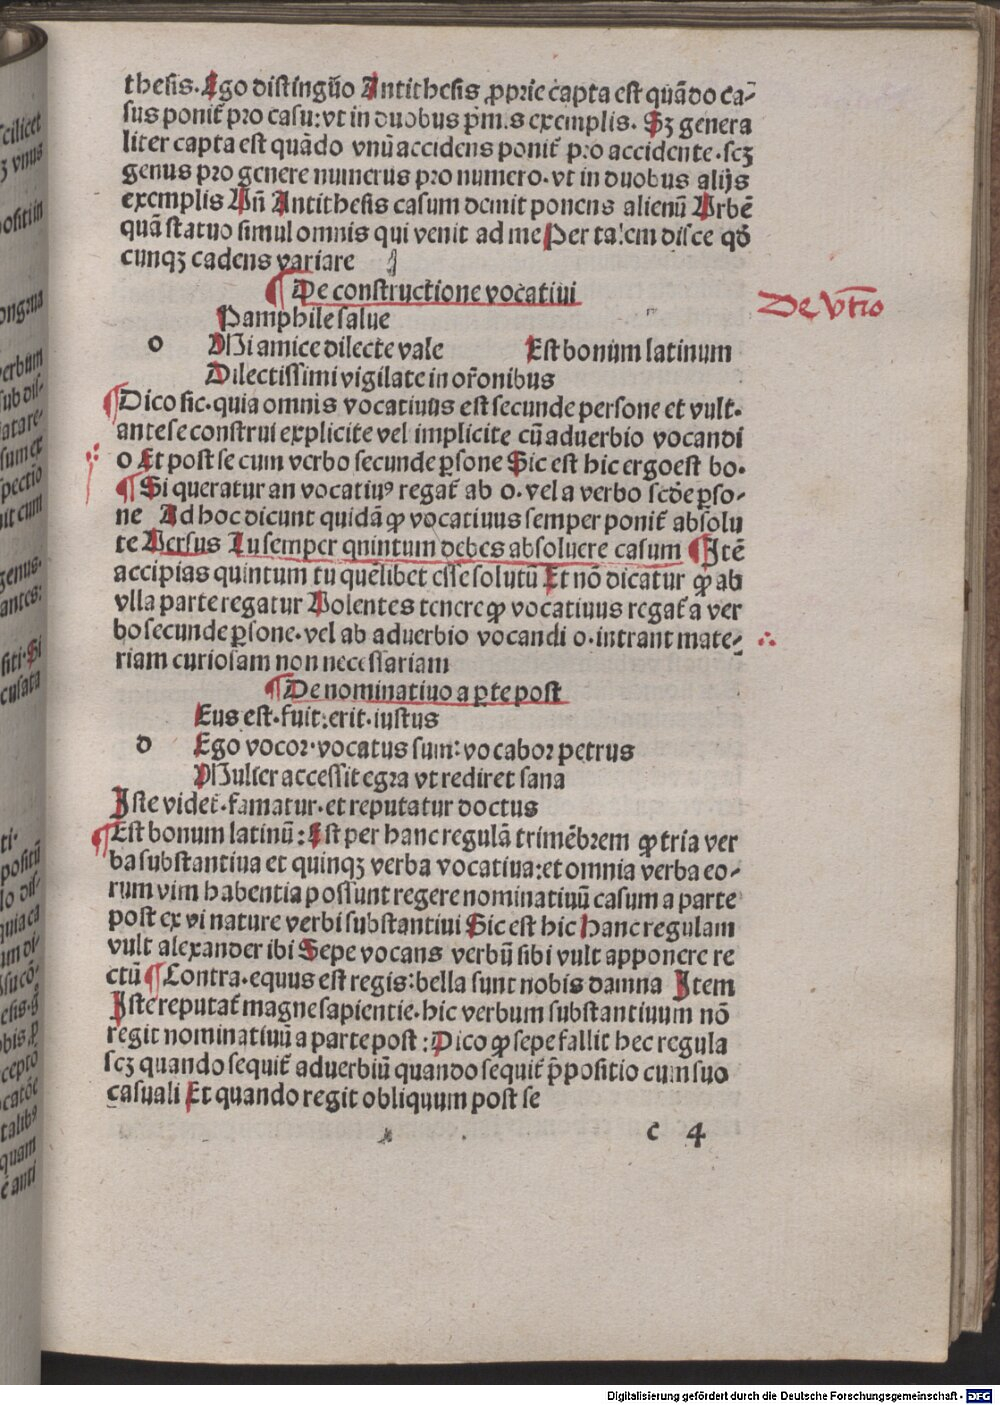 thesis. Ego distinguo Antithesis ꝓprie capta est quādo ca-
sus ponit᷑ pro casu: vt in duobus pm.s exemplis. Sꝫ genera
liter capta est quādo vnū accidens ponit᷑ pro accidente. scꝫ
genus pro genere numerus pro numero. vt in duobus alijs
exemplis Vñ Antithesis casum demit ponens alienū Vrbē
quā statuo simul omnis qui venit ad me Per talem disce qđ
cunqꝫ cadens variare
¶ De constructione vocatiui
De Vt̄io
Pamphile salue
o Mi amice dilecte vale Est bonum latinum
Dilectissimi vigilate in or̄onibus
¶ Dico sic. quia omnis vocatiuus est secunde persone et vult.
ante se construi explicite vel implicite cū aduerbio vocandi
o Et post se cum verbo secunde ꝑsone Sic est hic ergo est bo.
¶ Si queratur an vocatiuꝰ regat᷑ ab o. vel a verbo scd̄e ꝑso-
ne Ad hoc dicunt quidā ꝙ vocatiuus semper ponit᷑ absolu
te Versus Tu semper quintum debes absoluere casum ¶ Itē
accipias quintum tu quēlibet esse solutū Et nō dicatur ꝙ ab
vlla parte regatur Volentes tenere ꝙ vocatiuus regat᷑ a ver
bo secunde ꝑsone. vel ab aduerbio vocandi o. intrant mate-
riam curiosam non necessariam
¶ De nominatiuo a ꝑte post
Eus est. fuit: erit. iustus
d Ego vocor. vocatus sum: vocabor petrus
Mulier accessit egra vt rediret sana
Iste videt᷑. famatur. et reputatur doctus
¶ Est bonum latinū: Est per hanc regulā trimēbrem ꝙ tria ver
ba substantiua et quinqꝫ verba vocatiua: et omnia verba eo-
rum vim habentia possunt regere nominatiuū casum a parte
post ex vi nature verbi substantiui Sic est hic hanc regulam
vult alexander ibi Sepe vocans verbū sibi vult apponere re
ctū ¶ Contra. equus est regis: bella sunt nobis damna Item
Iste reputat᷑ magne sapientie. hic verbum substantiuum nō
regit nominatiuū a parte post: Dico ꝙ sepe fallit hec regula
scꝫ quando sequit᷑ aduerbiū quando sequit᷑ p̄positio cum suo
casuali Et quando regit obliquum post se
c 4
Digitalisierung gefördert durch die Deutsche Forschungsgemeinschaft - DFG